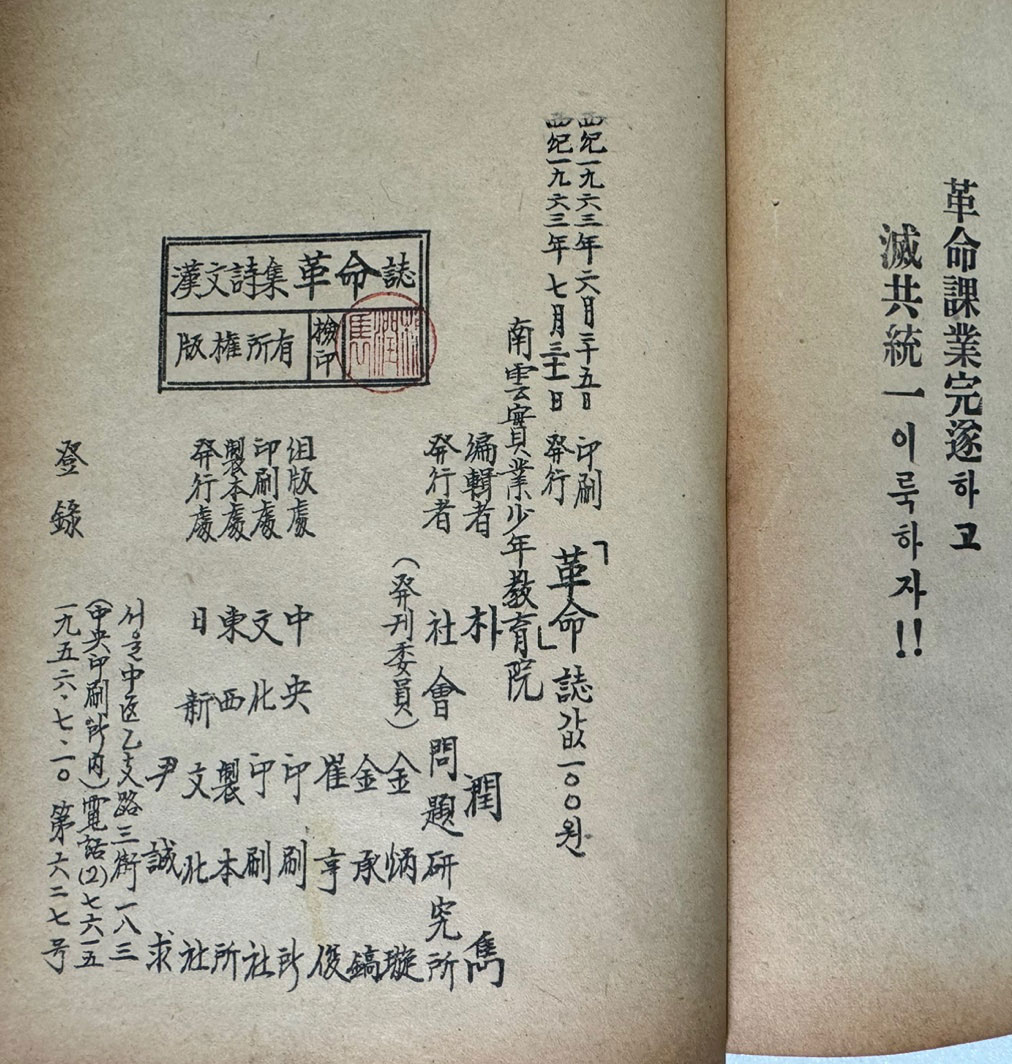 革命課業完遂하고
滅共統一이룩하자!!
西紀一九六三年六月二十五日 印刷
西紀一九六三年七月三十一日 発行
「革命」誌 값 一〇〇원
南雲實業少年敎育院
編輯者 朴潤雋
発行者 社會問題研究所
(発刊委員) 金炳璇
金承鎬
崔亨俊
组版處 中央印刷所
印刷處 文化印刷社
製本處 東西製本所
発行處 日新文化社
尹誠求
서울中区乙支路三街一八三
(中央印刷所内)電話(2)七六一五
登錄 一九五六·七·一〇 第六二七号
漢文詩集 革命誌
版權所有
檢印